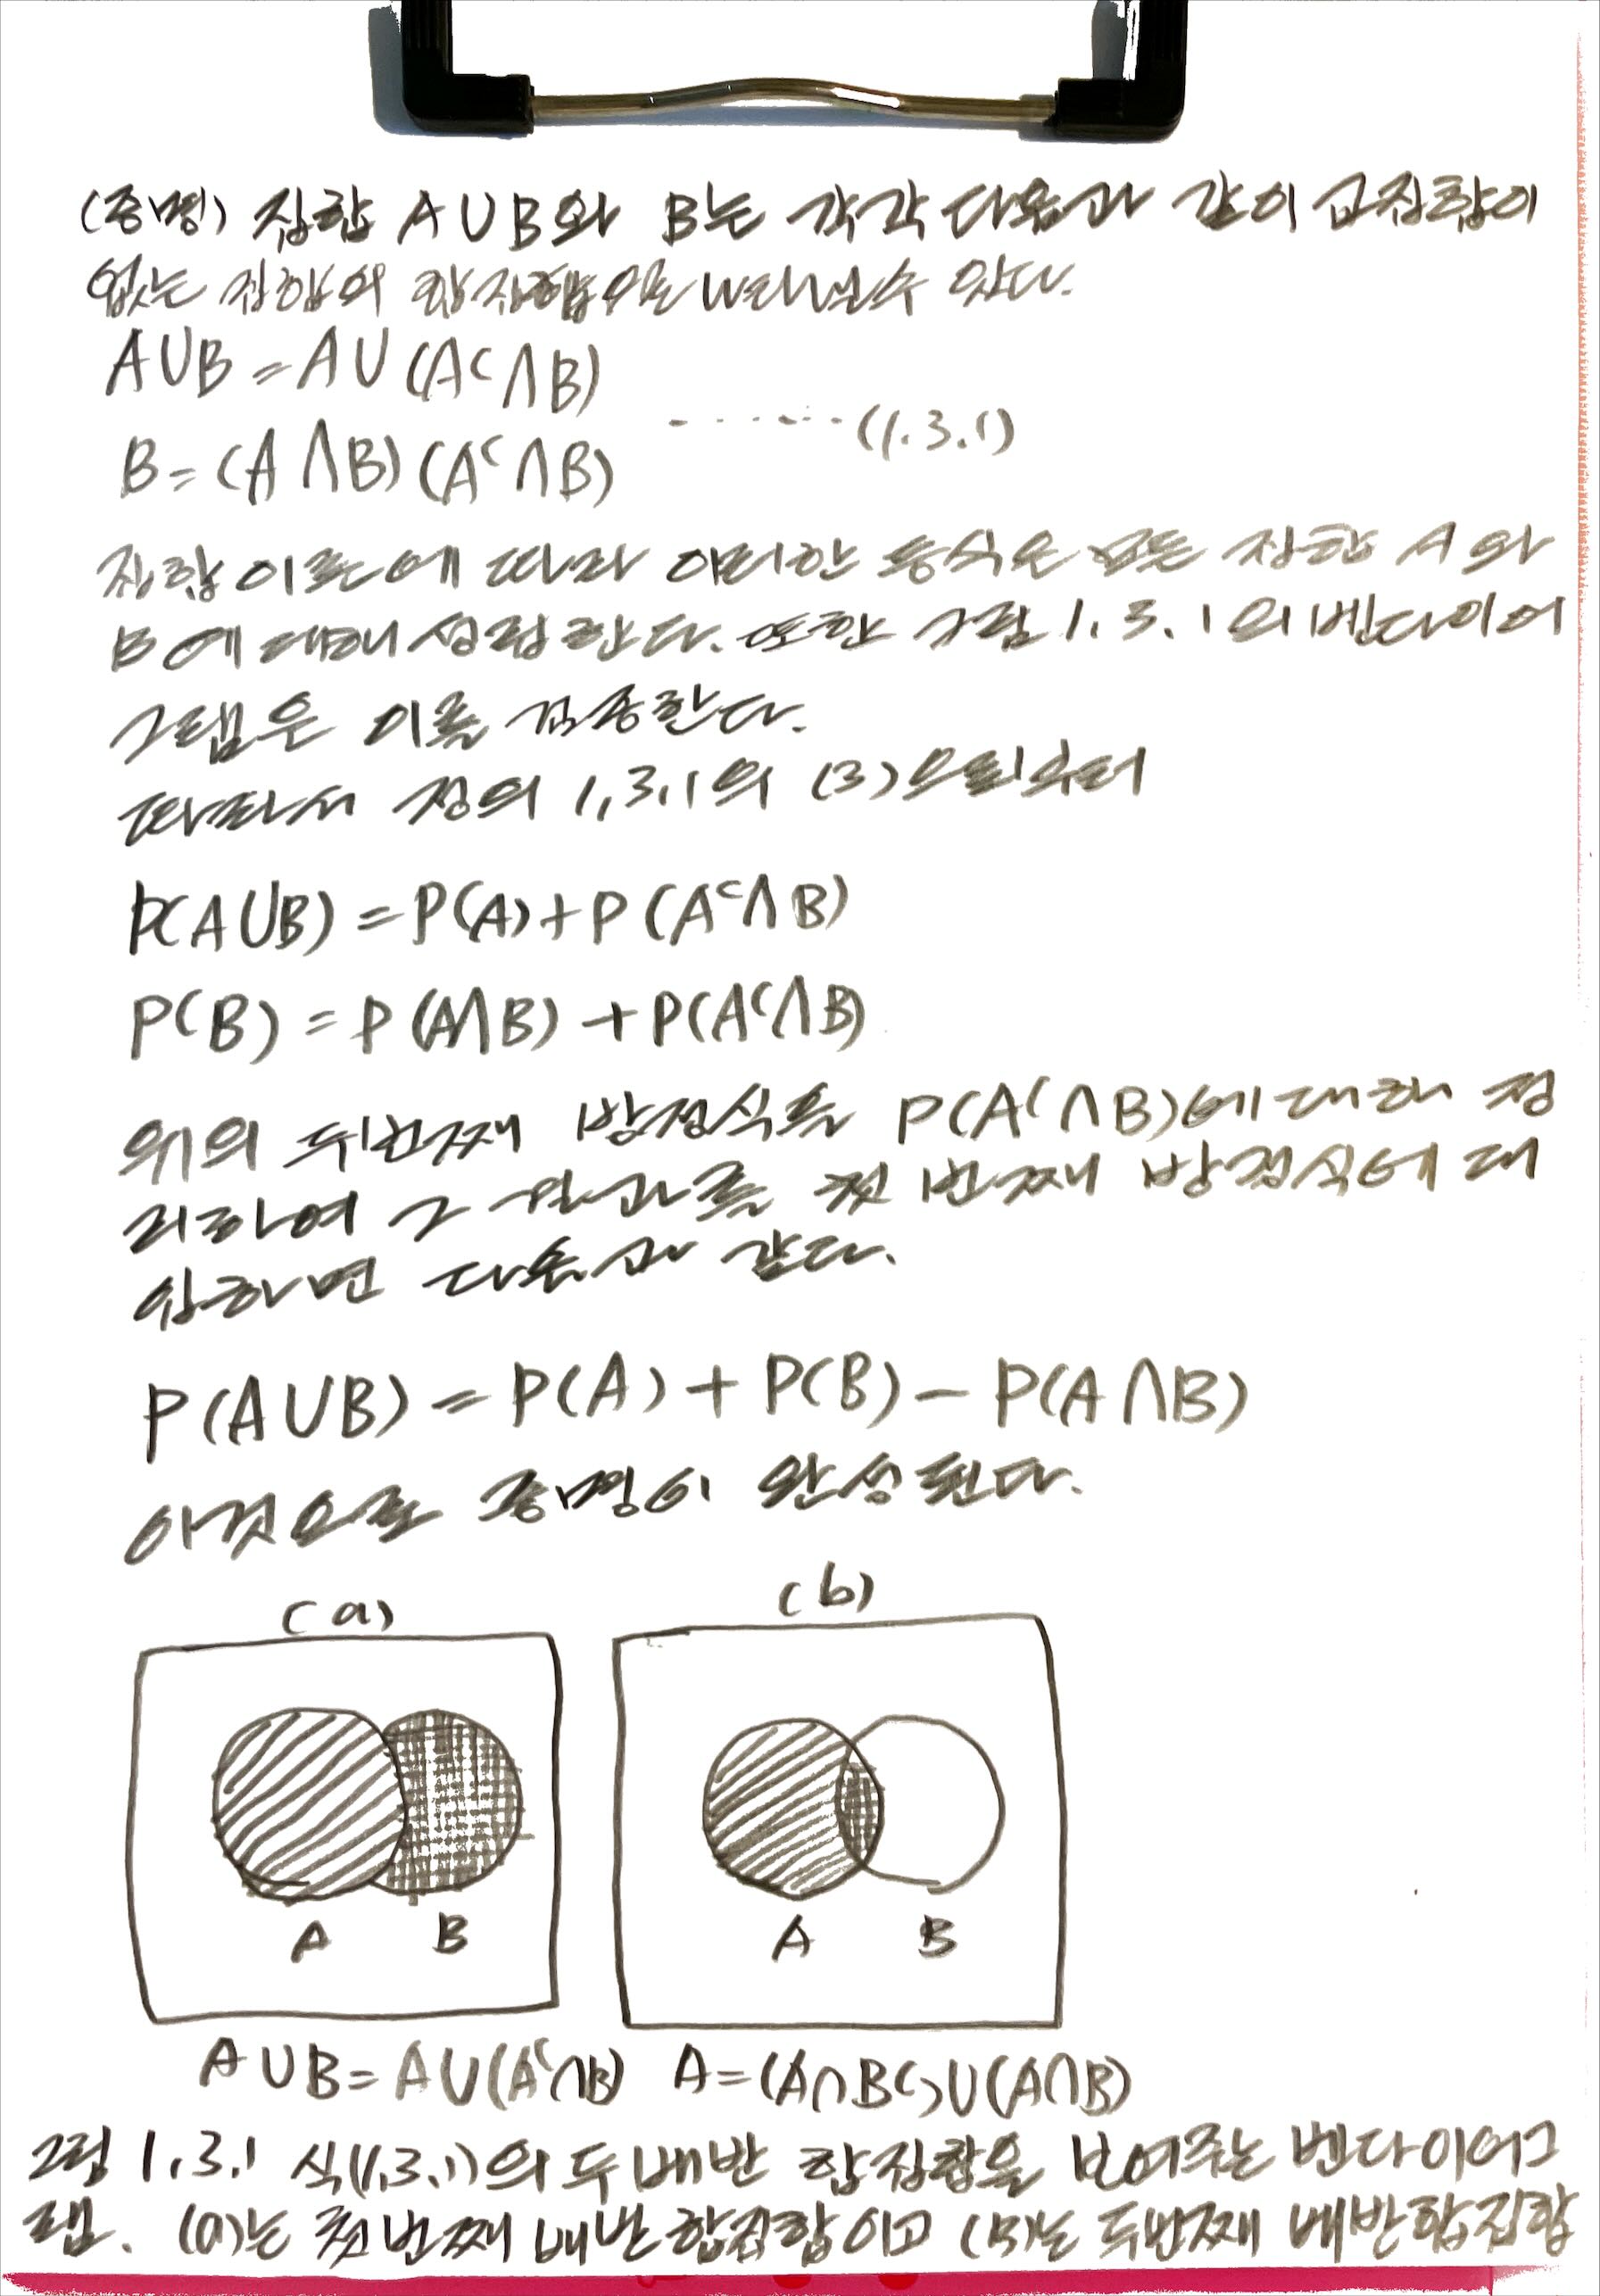 (증명) 집합 A∪B와 B는 각각 다음과 같이 교집합이
없는 집합의 합집합으로 나타낼 수 있다.
A∪B = A∪(Aᶜ∩B)
······(1.3.1)
B = (A∩B)(Aᶜ∩B)
집합 이론에 따라 이러한 등식은 모든 집합 A와
B에 대해 성립한다. 또한 그림 1.3.1의 벤다이어
그램은 이를 검증한다.
따라서 정의 1.3.1의 (3)으로부터
P(A∪B) = P(A) + P(Aᶜ∩B)
P(B) = P(A∩B) + P(Aᶜ∩B)
위의 두번째 방정식을 P(Aᶜ∩B)에 대해 정
리하여 그 결과를 첫 번째 방정식에 대
입하면 다음과 같다.
P(A∪B) = P(A) + P(B) - P(A∩B)
이것으로 증명이 완성된다.
(a) (b)
A B A B
A∪B = A∪(Aᶜ∩B) A = (A∩Bᶜ)∪(A∩B)
그림 1.3.1 식(1.3.1)의 두 배반 합집합을 보여주는 벤다이어그
램. (a)는 첫 번째 배반합집합이고 (b)는 두번째 배반합집합